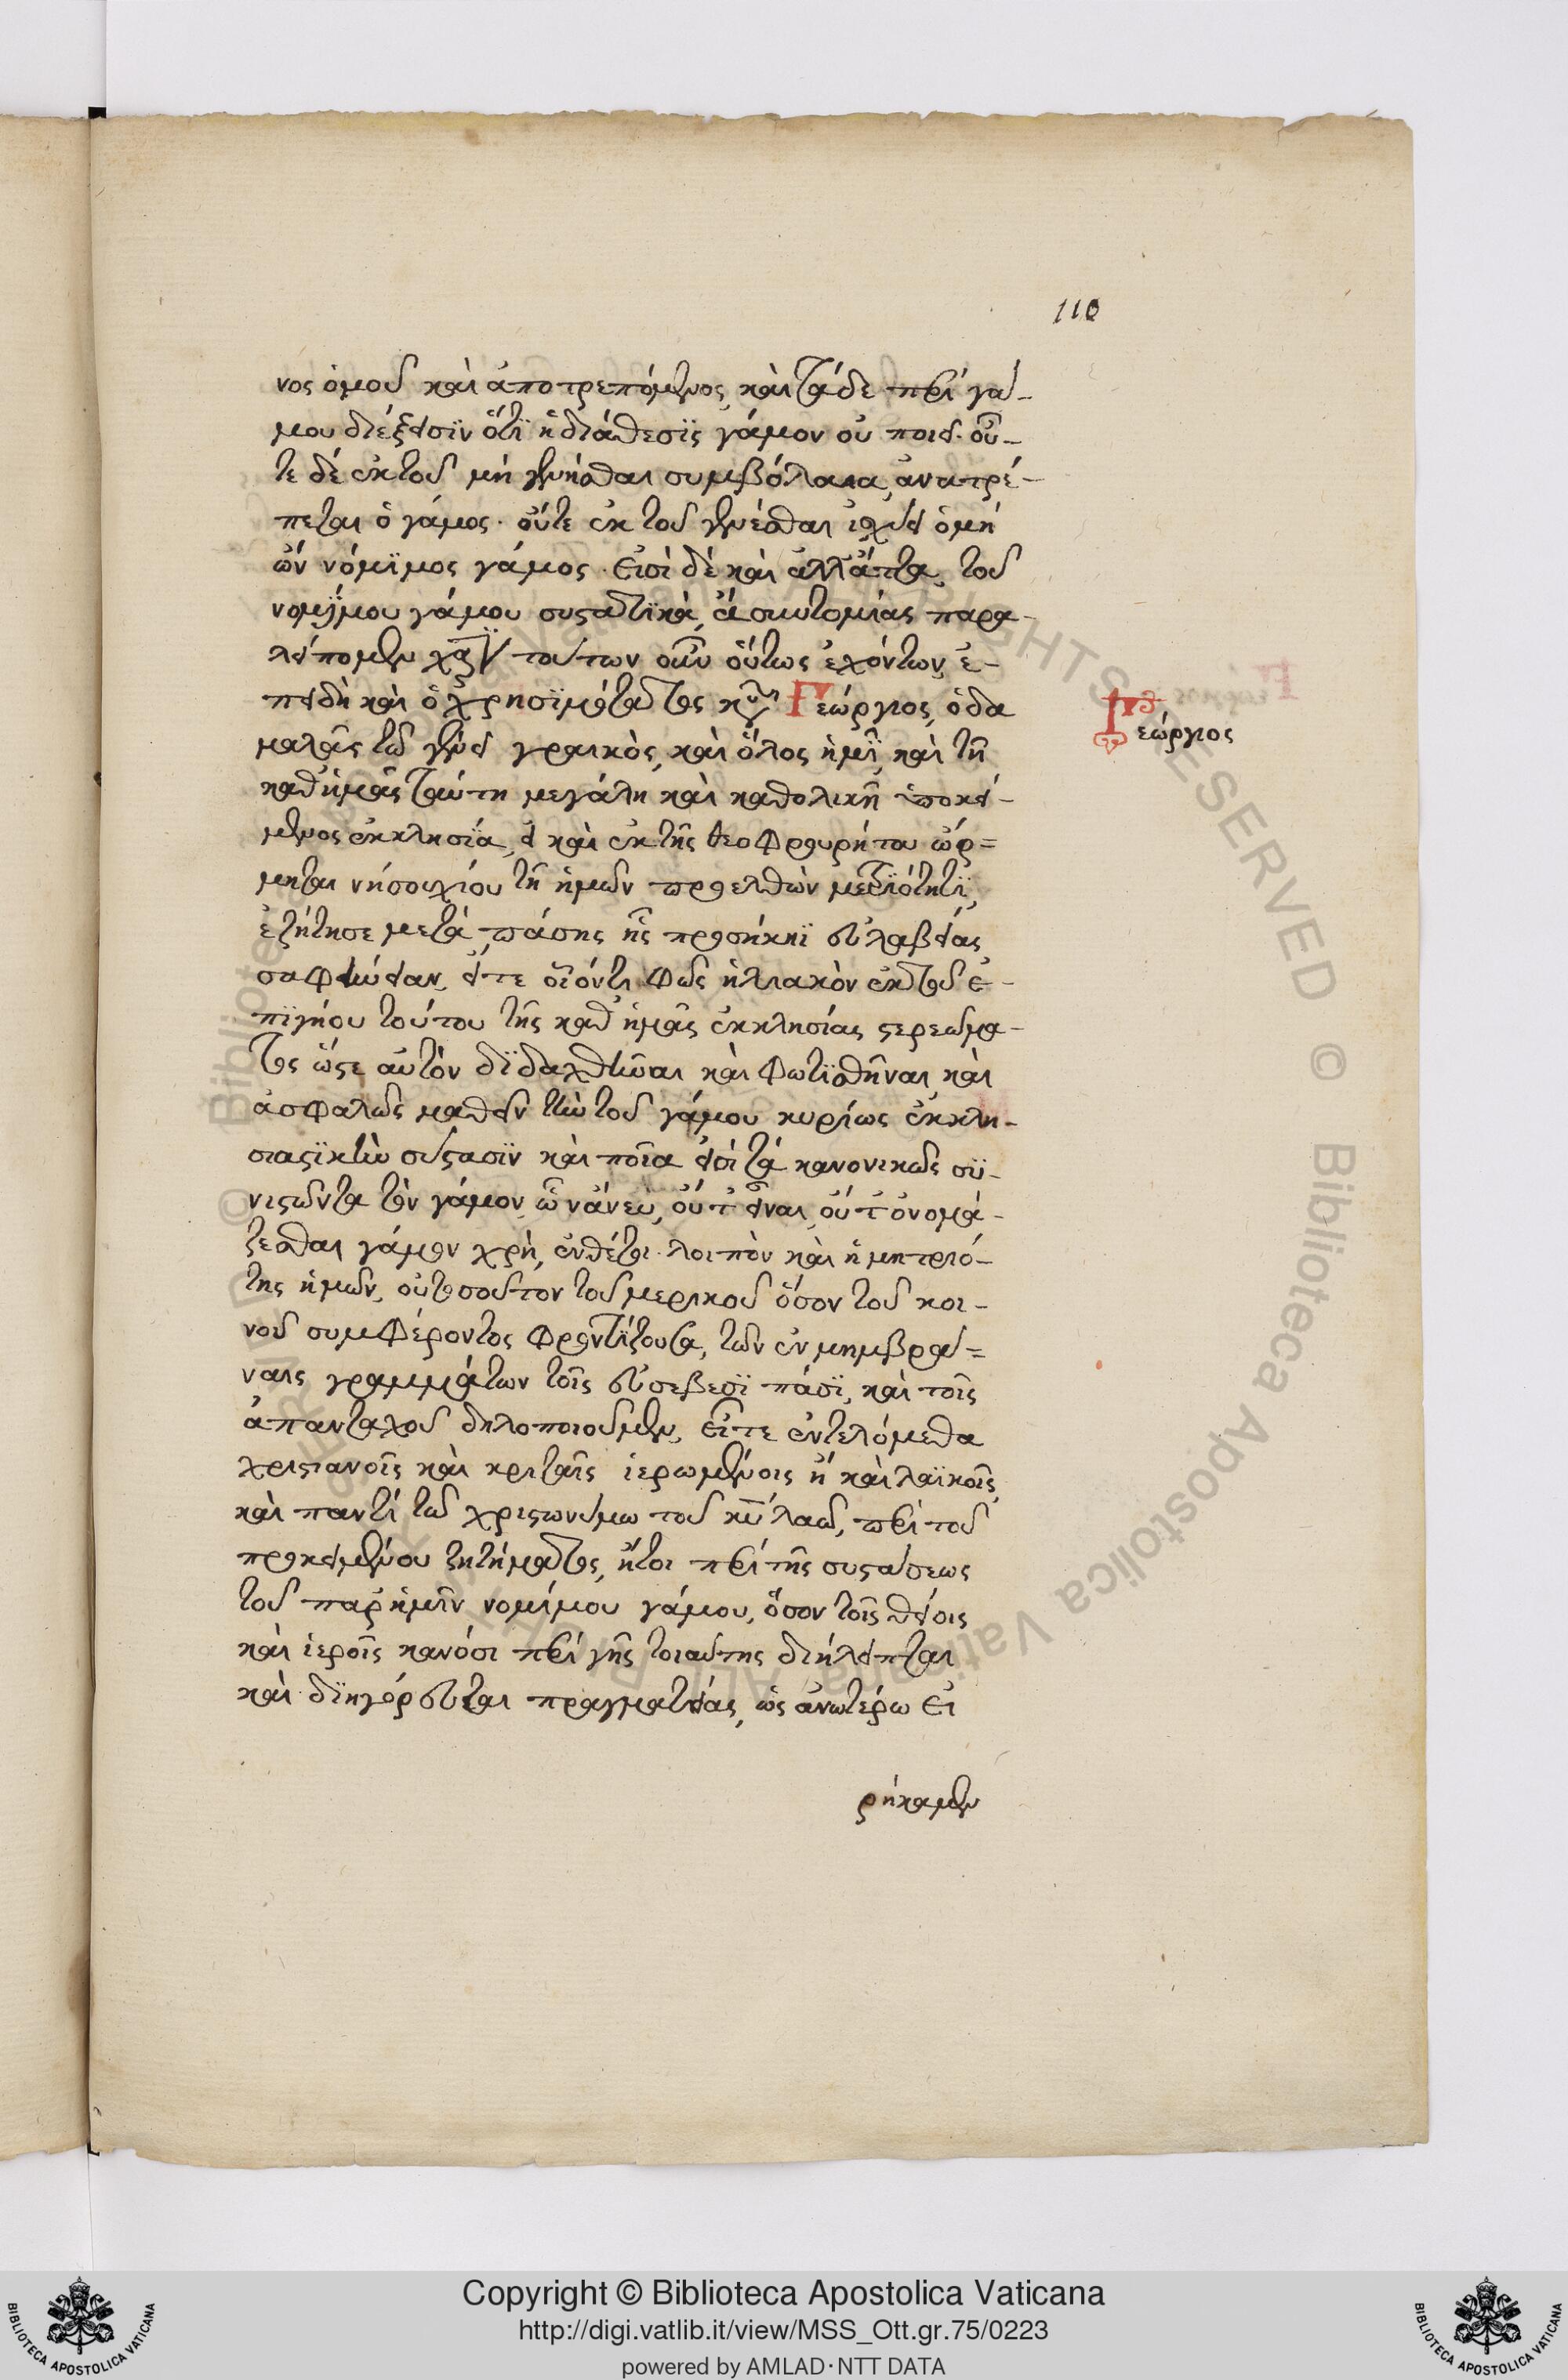 110
νος ὁμοῦ καὶ ἀποτρεπόμενος, καὶ τάδε περὶ γά-
μου διέξεισϊν ὅτϊ ἡ διάθεσϊς γάμον οὐ ποιεῖ. οὔ-
τε δὲ ἐκ τοῦ μὴ γενῆσθαι συμβόλαια, ἀνατρέ-
πεται ὁ γάμος. οὔτε ἐκ τοῦ γενέσθαι ἰσχύει ὁ μὴ
ὢν νόμϊμος γάμος. εἰσὶ δὲ καὶ ἄλλ' ἄττα, τοῦ
νομϊμου γάμου συστατϊκὰ, ἃ συντομίας παρα-
λείπομεν χάριν τούτων οὖν οὕτως ἐχόντων, ἐ-
πειδὴ καὶ ὁ χρησϊμώτατος κὺρ Γεώργιος, ὁ δα
μαλᾶς τῶ γένει γραικὸς, καὶ ὅλος ἡμῖ, καὶ τῆ
καθ' ἡμᾶς ταύτη μεγάλη καὶ καθολικῆ ὑποκεί-
μενος ἐκκλησϊα, εἰ καὶ ἐκ τῆς θεοφρουρήτου ὥρ=
μηται νήσου χίου τῆ ἡμῶν προελθὼν μετρϊότητϊ,
ἐζήτησε μετὰ πάσης ἧς προσήκηϊ εὐλαβείας
σαφήνειαν, εἴτε οἱονεὶ φῶς ἡλιακὸν ἐκ τοῦ ἐ-
πϊγήου τούτου τῆς καθ' ἡμᾶς ἐκκλησίας στερεώμα-
τος ὥστε αὐτὸν δϊδαχθῆναι καὶ φωτϊσθῆναι, καὶ
ἀσφαλῶς μαθεῖν τὴν τοῦ γάμου κυρίως ἐκκλη-
σιαστϊκὴν σύστασϊν καὶ ποῖα εἰσὶ τὰ κανονικῶς σϋ-
νιστῶντα τὸν γάμον, ὧν ἄνευ, οὔτ' εἶναι, οὔτ' ὀνομά-
ζεσθαι γάμον χρὴ, ἐνθέται. λοιπὸν καὶ ἡ μητριό-
της ἡμῶν, οὐ τοσοῦτον τοῦ μερικοῦ ὅσον τοῦ κοι-
νοῦ συμφέροντος φροντϊζουσα, τῶν ἐν μημβραΐ=
ναις γραμμάτων τοῖς εὐσεβεσϊ πάσϊ, καὶ τοῖς
ἁπανταχοῦ δηλοποιοῦμεν, εἴτε ἐντελόμεθα
χριστιανοῖς καὶ κριταῖς ἱερωμένοις ἢ καὶ λαϊκοῖς
καὶ παντὶ τῶ χριστωνύμω τοῦ κυ λαῶ, περὶ τοῦ
προκειμένου ζητήματος, ἤτοι περὶ τῆς συστάσεως
τοῦ παρ' ἡμῖν νομίμου γάμου, ὅσον τοῖς θείοις
καὶ ἱεροῖς κανόσι περὶ γῆς τοιαύτης διήλειπται
καὶ δϊηγόρευται πραγματείας, ὡς ἀνωτέρω εἰ
ρήκαμεν
Γεώργιος
Copyright © Biblioteca Apostolica Vaticana
http://digi.vatlib.it/view/MSS_Ott.gr.75/0223
powered by AMLAD·NTT DATA
BIBLIOTECA APOSTOLICA VATICANA
BIBLIOTECA APOSTOLICA VATICANA